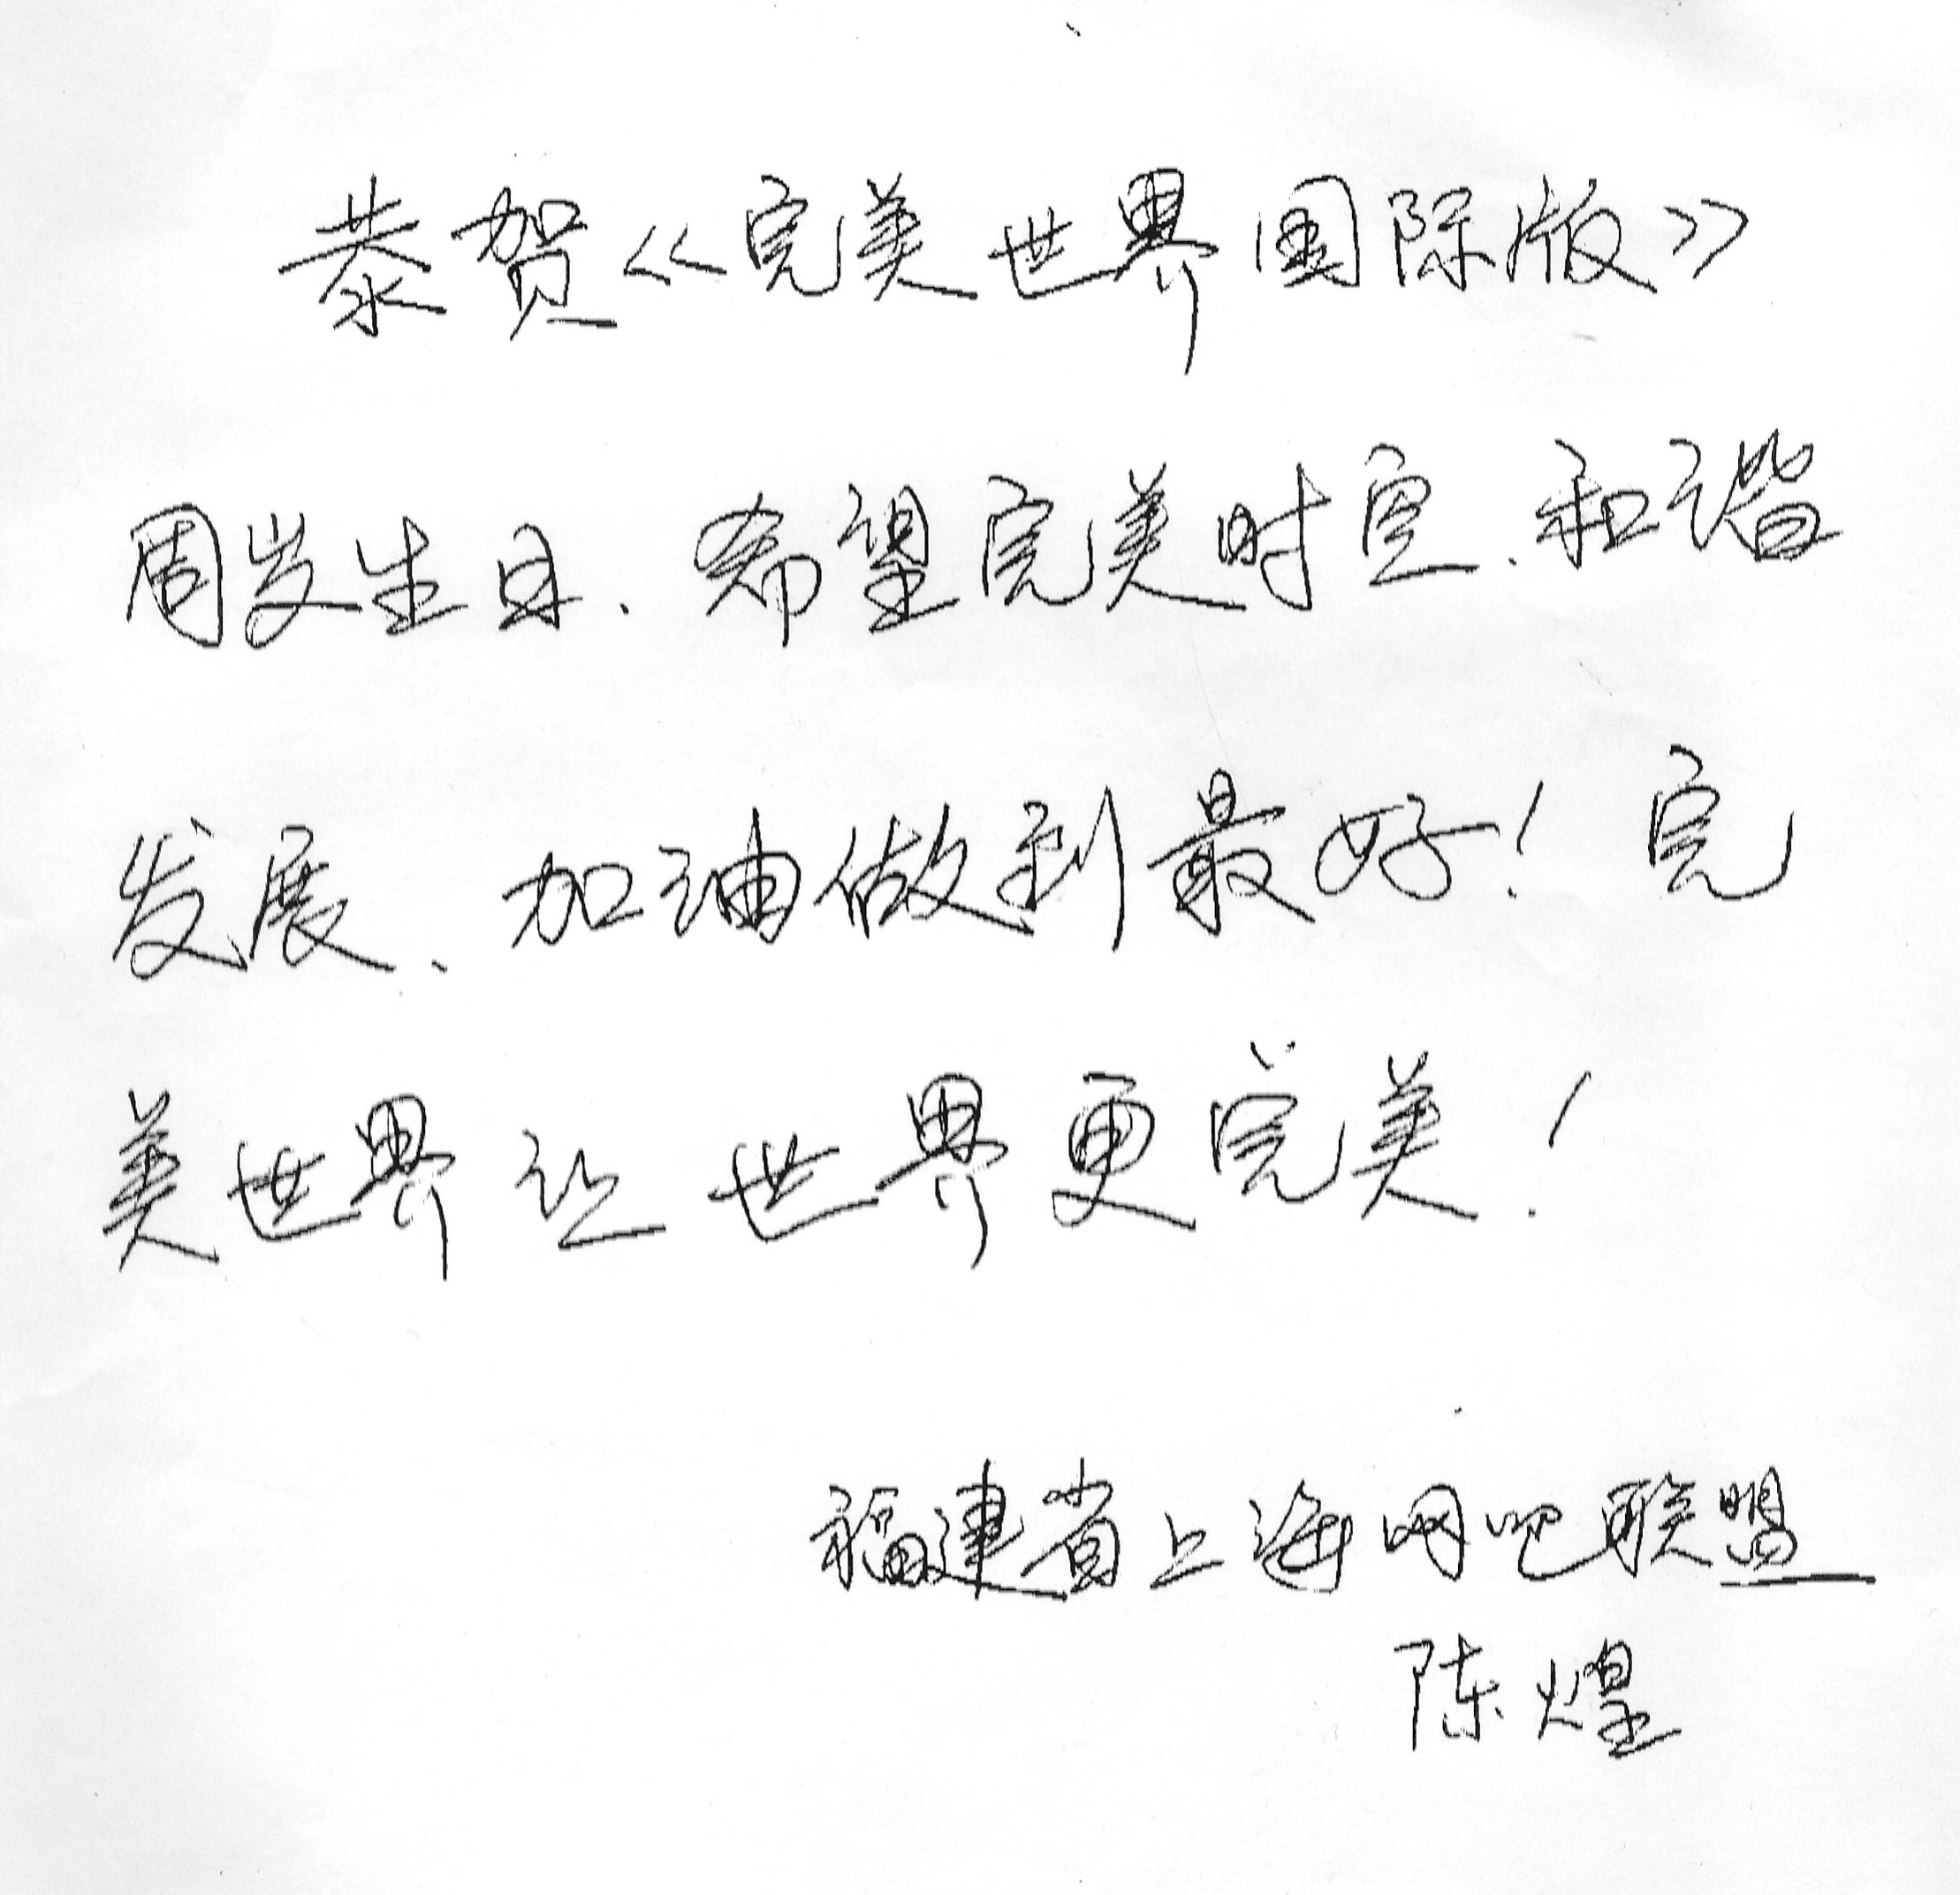 恭贺《完美世界国际版》
周岁生日.希望完美时空.和谐
发展、加油做到最好!完
美世界让世界更完美!
福建省上海网吧联盟
陈煌